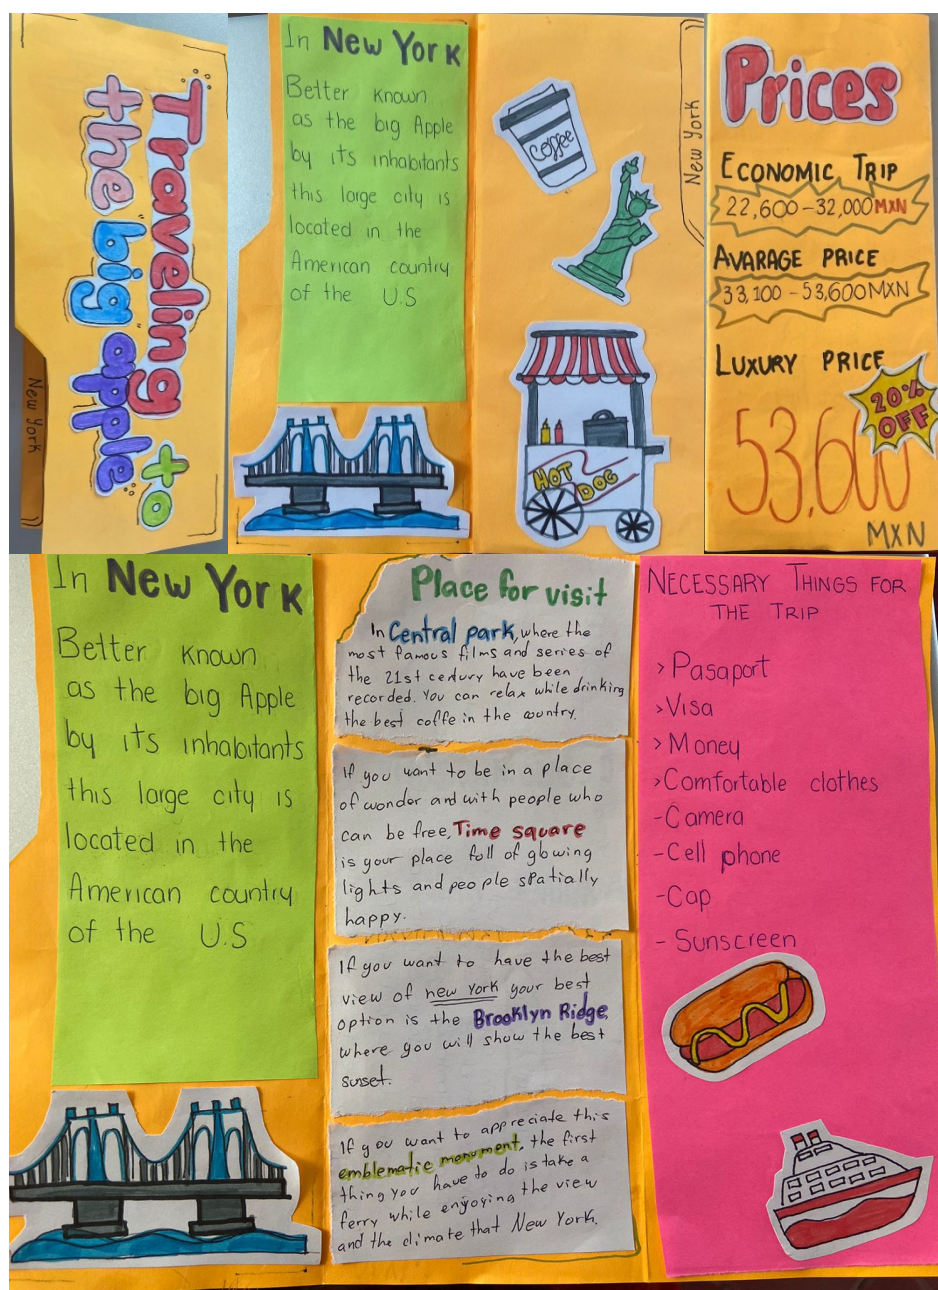 Traveling to
the big apple
New York
In New York
Better known
as the big Apple
by its inhabitants
this large city is
located in the
American country
of the U.S
Coffee
HOT
DOG
New York
Prices
ECONOMIC TRIP
22,600-32,000MXN
AVARAGE PRICE
33,100-53,600MXN
LUXURY PRICE
20%
OFF
53,600
MXN
In New York
Better known
as the big Apple
by its inhabitants
this large city is
located in the
American country
of the U.S
Place for visit
In Central park, where the
most famous films and series of
the 21st century have been
recorded. You can relax while drinking
the best coffe in the country.
If you want to be in a place
of wonder and with people who
can be free, Time square
is your place full of glowing
lights and people spatially
happy.
If you want to have the best
view of new York your best
option is the Brooklyn Ridge,
where you will show the best
sunset.
If you want to appreciate this
emblematic monument, the first
thing you have to do is take a
ferry while enjoying the view
and the climate that New York.
NECESSARY THINGS FOR
THE TRIP
> Pasaport
> Visa
> Money
> Comfortable clothes
- Camera
- Cell phone
- Cap
- Sunscreen